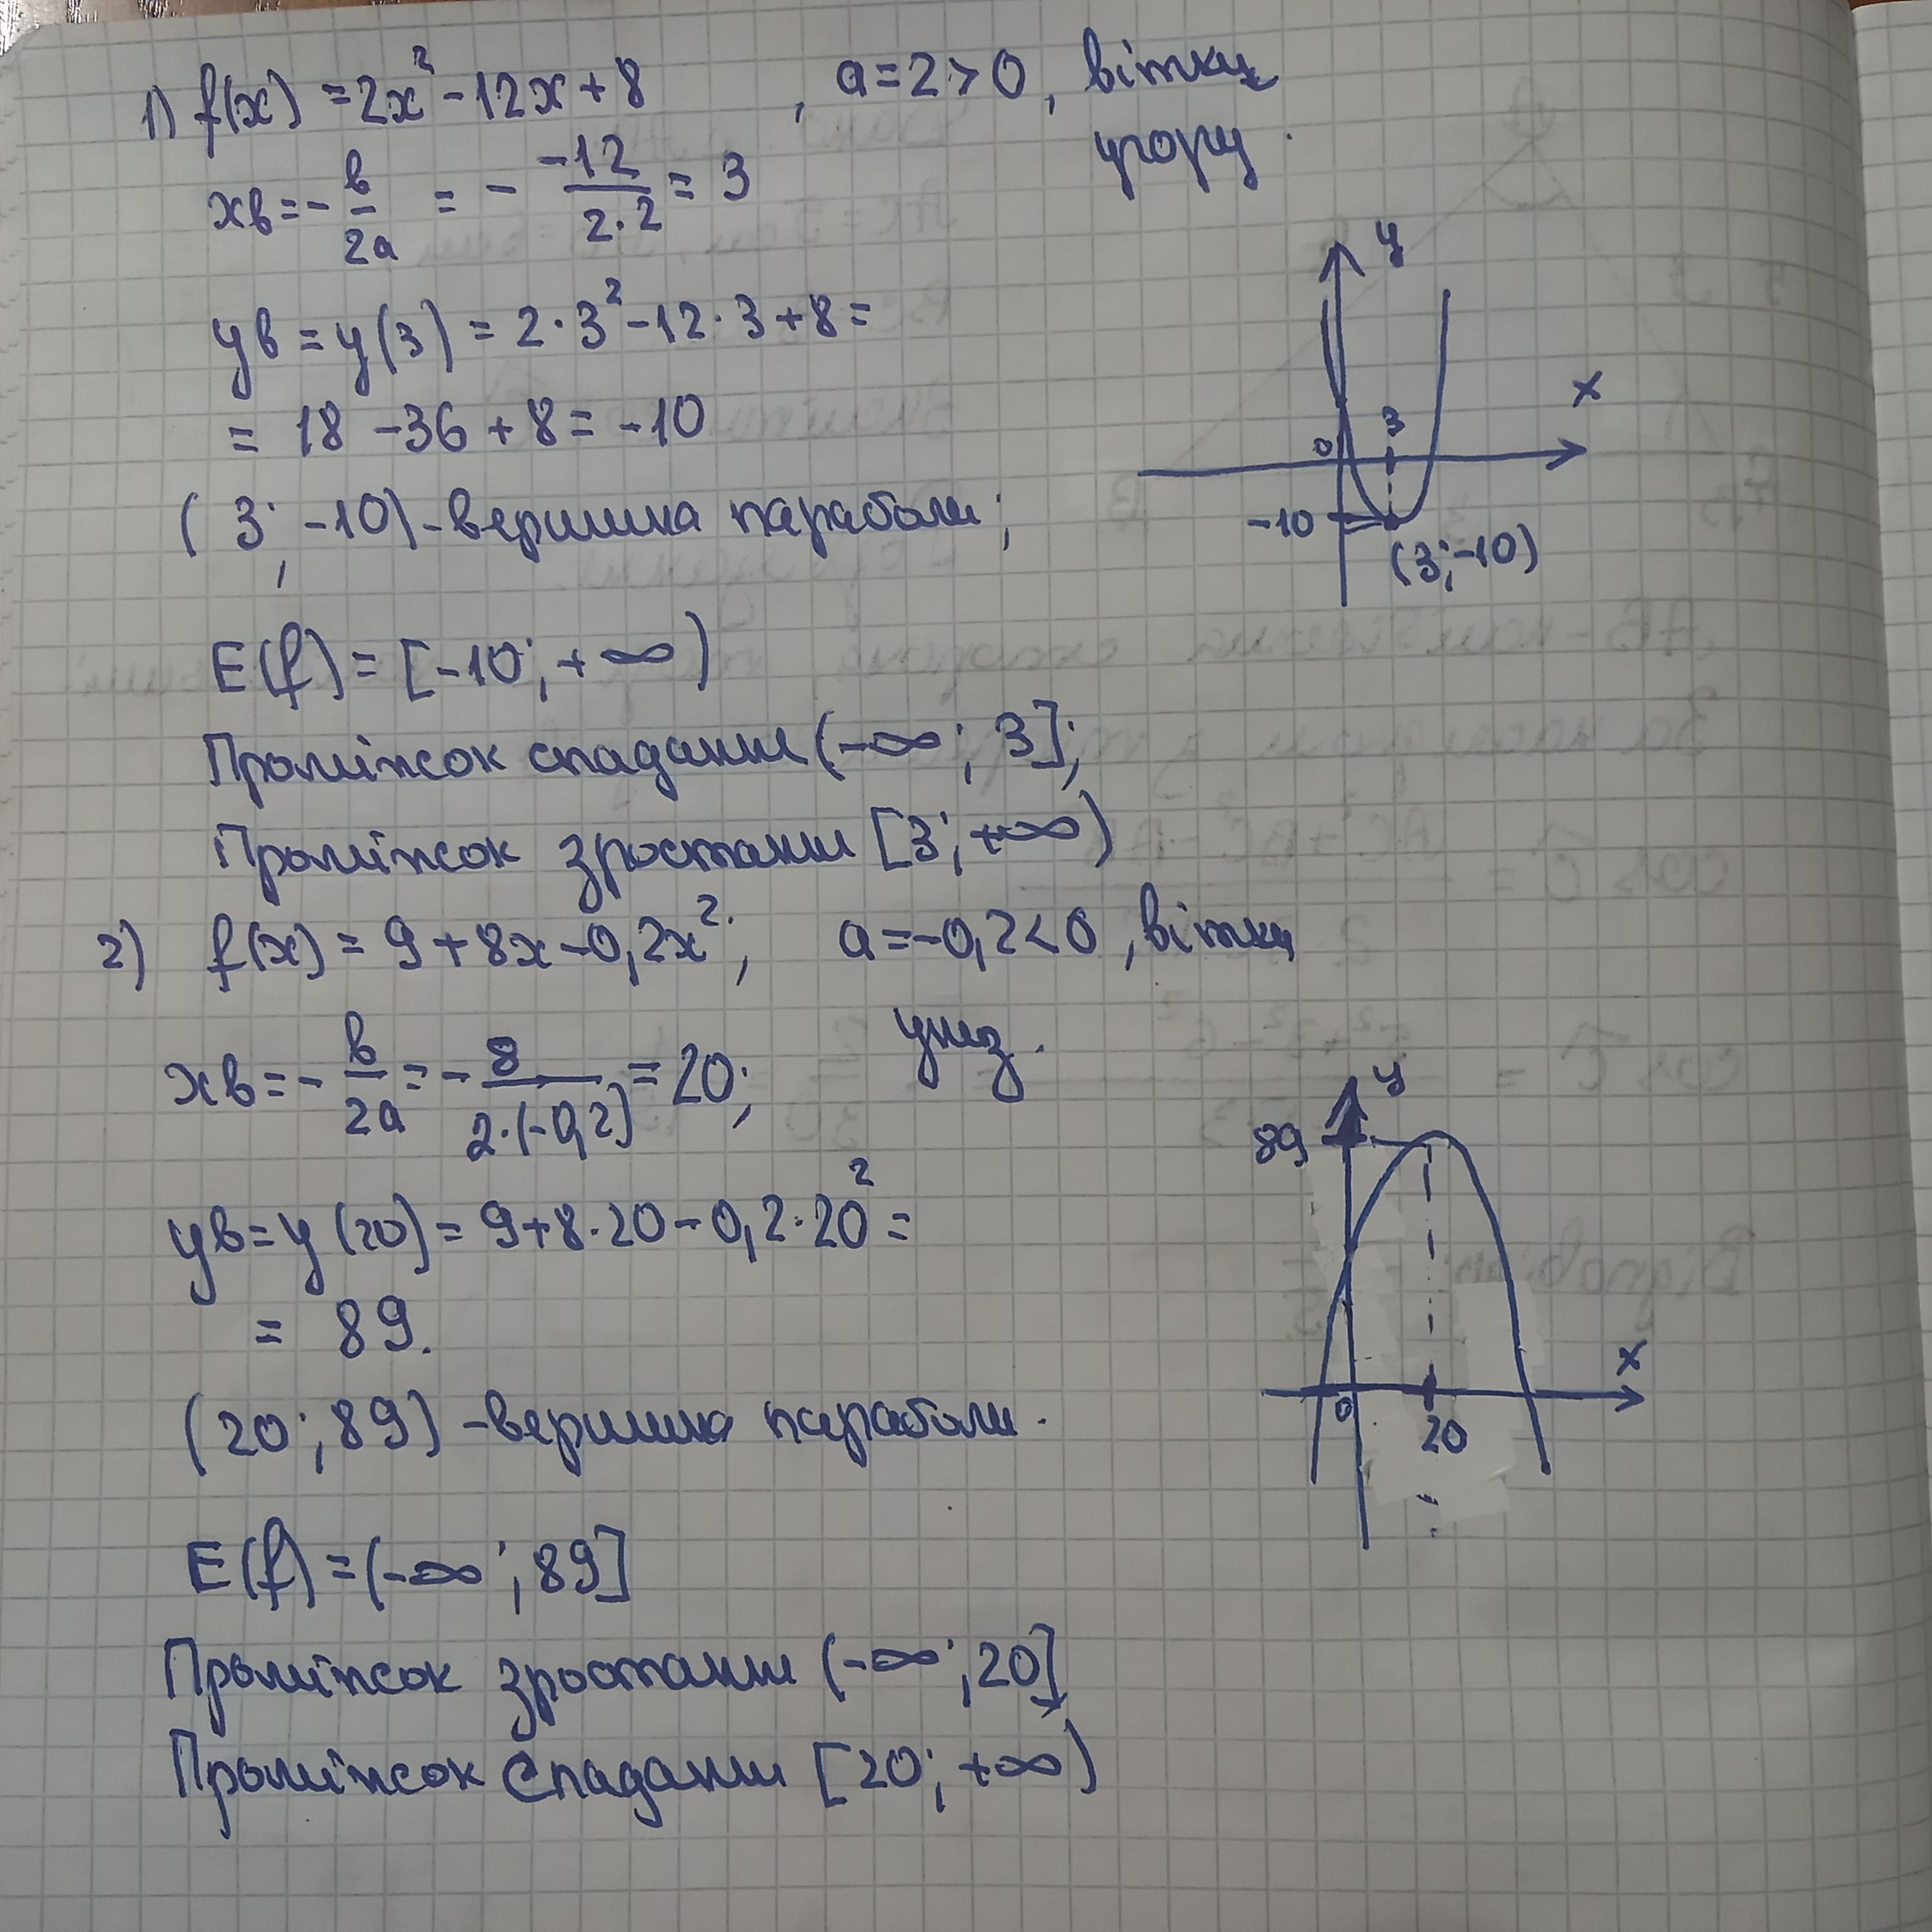 1) f(x) = 2x² - 12x + 8 , a = 2 > 0, вітки
угору.
xв = - в/2a = - -12/2·2 = 3
yв = y(3) = 2·3² - 12·3 + 8 =
= 18 - 36 + 8 = -10
(3; -10) - вершина параболи;
y
x
3
0
-10
(3; -10)
E(f) = [-10; +∞)
Проміжок спадання (-∞; 3];
Проміжок зростання [3; +∞)
2) f(x) = 9 + 8x - 0,2x²; a = -0,2 < 0, вітки
униз.
xв = - в/2a = - 8/2·(-0,2) = 20;
yв = y(20) = 9 + 8·20 - 0,2·20² =
= 89.
(20; 89) - вершина параболи.
y
89
x
0
20
E(f) = (-∞; 89]
Проміжок зростання (-∞; 20]
Проміжок спадання [20; +∞)